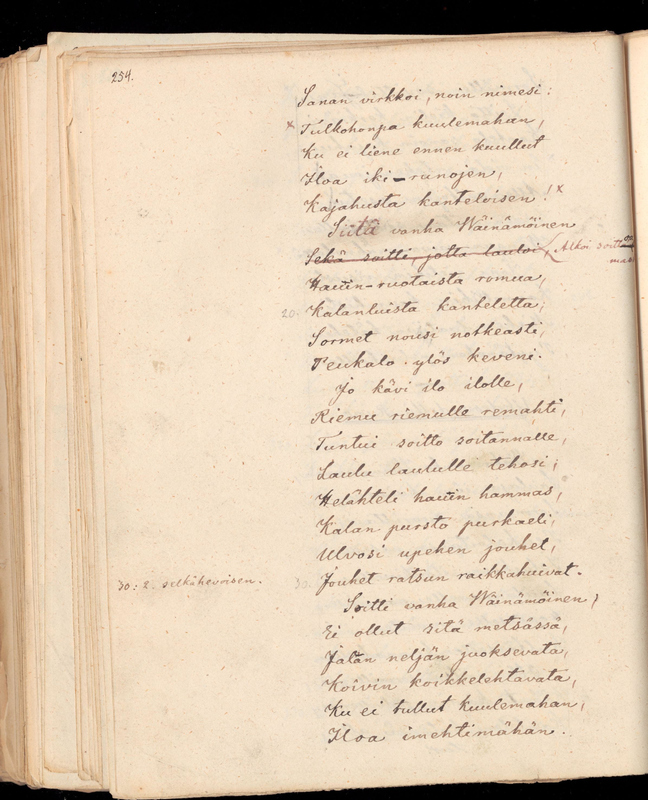 254.
Sanan virkkoi, noin nimesi:
x Tulkohonpa kuulemahan,
Ku ei liene ennen kuullut
Iloa iki-runojen,
Kajahusta kanteloisen! x
Siitä vanha Wäinämöinen
Sekä soitti, jotta lauloi, Alkoi soitt
Hauin-ruotaista romua,
20. Kalanluista kanteletta;
Sormet nousi notkeasti,
Peukalo ylös keveni.
Jo kävi ilo ilolle,
Riemu riemulle remahti,
Tuntui soitto soitannalle,
Laulu laululle tehosi;
Helähteli hauin hammas,
Kalan pursto purkaeli,
Ulvosi upehen jouhet,
30: 2. selkähevoisen. 30. Jouhet ratsun raikkahuivat.
Soitti vanha Wäinämöinen,
Ei ollut sitä metsässä,
Jalan neljän juoksevata,
Koivin koikkelehtavata,
Ku ei tullut kuulemahan,
Iloa imehtimähän.